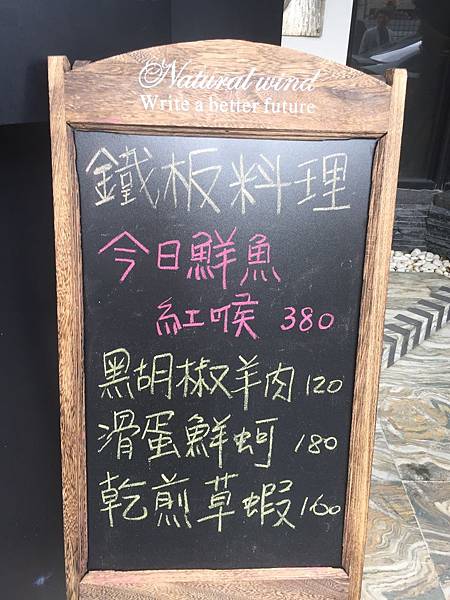 Natural wind
Write a better future
鐵板料理
今日鮮魚
紅喉 380
黑胡椒羊肉 120
滑蛋鮮蚵 180
乾煎草蝦 160